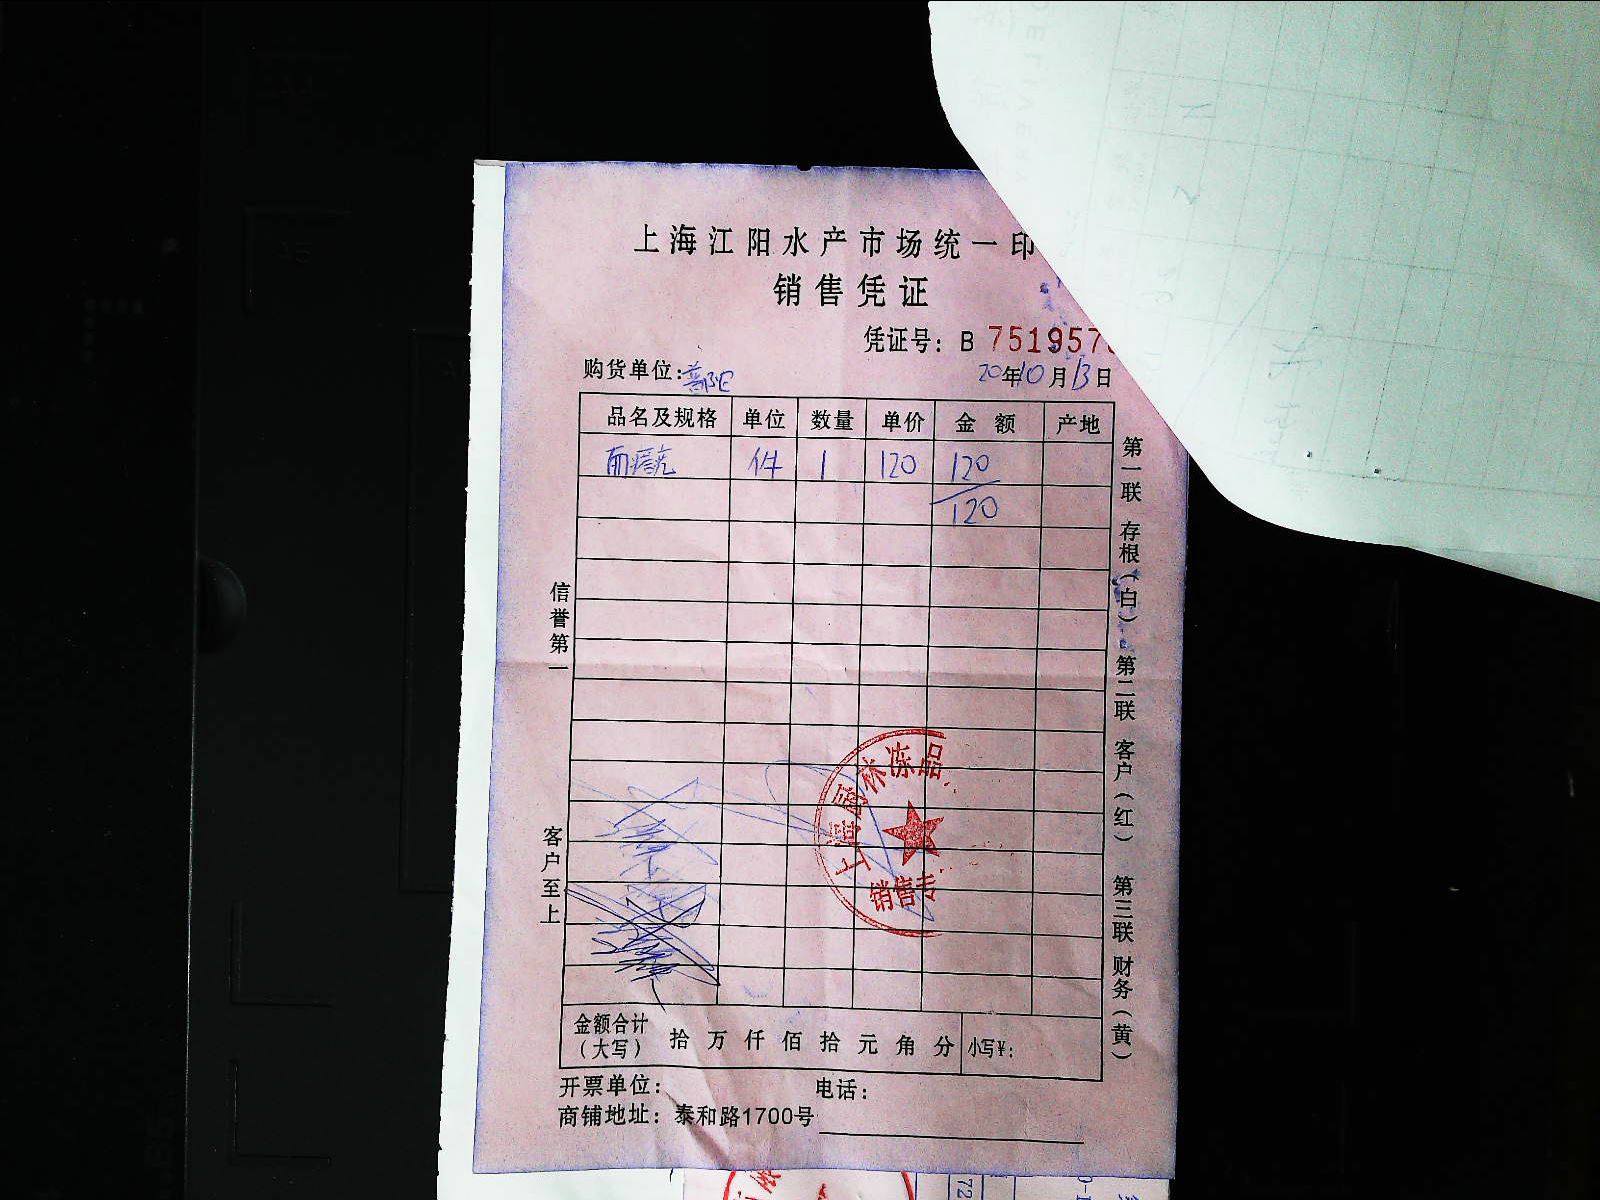 上海江阳水产市场统一印
销售凭证
凭证号：B 751957
购货单位：
20年10月13日
品名及规格 单位 数量 单价 金额 产地
件 1 120 120
120
信誉第一
客户至上
第一联 存根（白） 第二联 客户（红） 第三联 财务（黄）
林冻品
销售专
金额合计（大写） 拾 万 仟 佰 拾 元 角 分 小写¥：
开票单位： 电话：
商铺地址：泰和路1700号